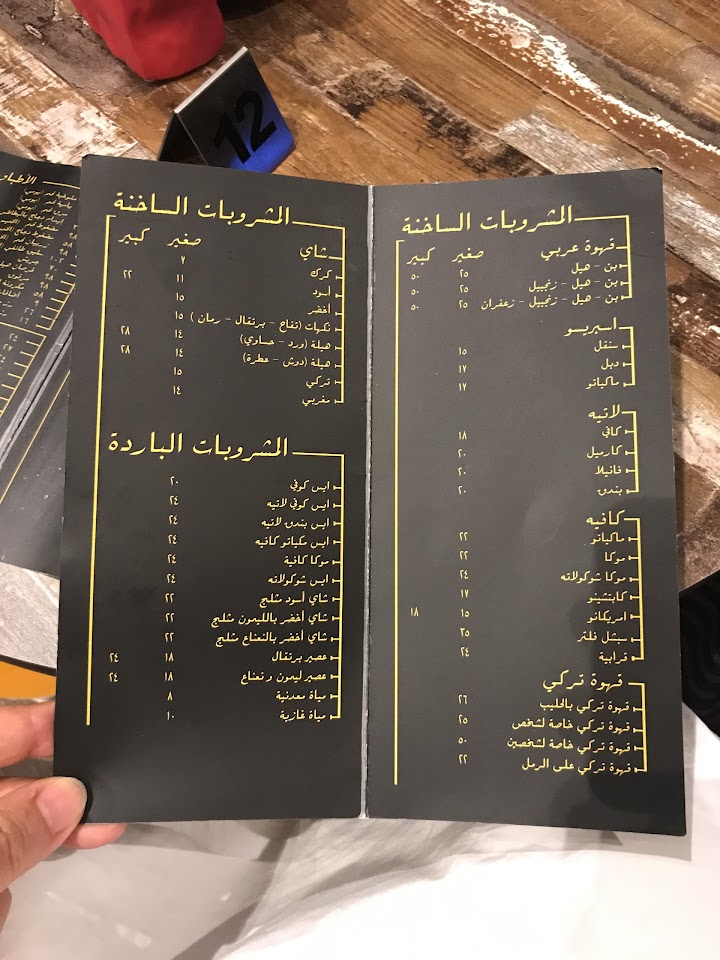 12
المشروبات الساخنة
قهوة عربي صغير كبير
بن - هيل ٢٥ ٥٠
بن - هيل - زنجبيل ٢٥ ٥٠
بن - هيل - زنجبيل - زعفران ٢٥ ٥٠
اسبريسو
سنقل ١٥
دبل ١٧
ماكياتو ١٧
لاتيه
كافي ١٨
كارميل ٢٠
فانيلا ٢٠
بندق ٢٠
كافيه
ماكياتو ٢٢
موكا ٢٢
موكا شوكولاته ٢٤
كابتشينو ١٧
امريكانو ١٥ ١٨
سبشل فلتر ٣٥
قرابية ٢٤
قهوة تركي
قهوة تركي بالحليب ٢٦
قهوة تركي خاصة لشخص ٢٥
قهوة تركي خاصة لشخصين ٥٠
قهوة تركي على الرمل ٢٢
المشروبات الساخنة
شاي صغير كبير
كرك ٧
أسود ١١ ٢٢
أخضر ١٥
نكهات (تفاح - برتقال - رمان ) ١٥
هيلة (ورد - حساوي) ١٤ ٢٨
هيلة (دوش - عطرة) ١٤ ٢٨
تركي ١٥
مغربي ١٤
المشروبات الباردة
ايس كوفي ٢٠
ايس كوفي لاتيه ٢٤
ايس بندق لاتيه ٢٤
ايس مكياتو كافيه ٢٤
موكا كافية ٢٤
ايس شوكولاته ٢٤
شاي أسود مثلج ٢٢
شاي أخضر بالليمون مثلج ٢٢
شاي أخضر بالنعناع مثلج ٢٢
عصير برتقال ١٨ ٢٤
عصير ليمون و نعناع ١٨ ٢٤
مياة معدنية ٨
مياة غازية ١٠